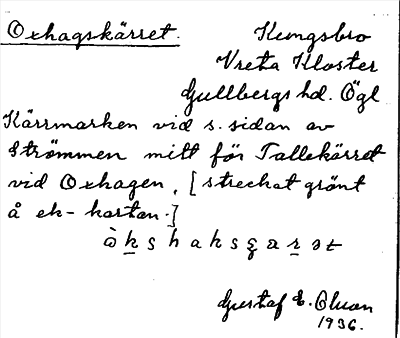 Oxhagskärret.
Kungsbro
Vreta Kloster
Gullbergs hd. Ögl
Kärrmarken vid s. sidan av
Strömmen mitt för Tallekärret
vid Oxhagen, [streckat grönt
å ek-kartan.]
Gustaf E.
1936.